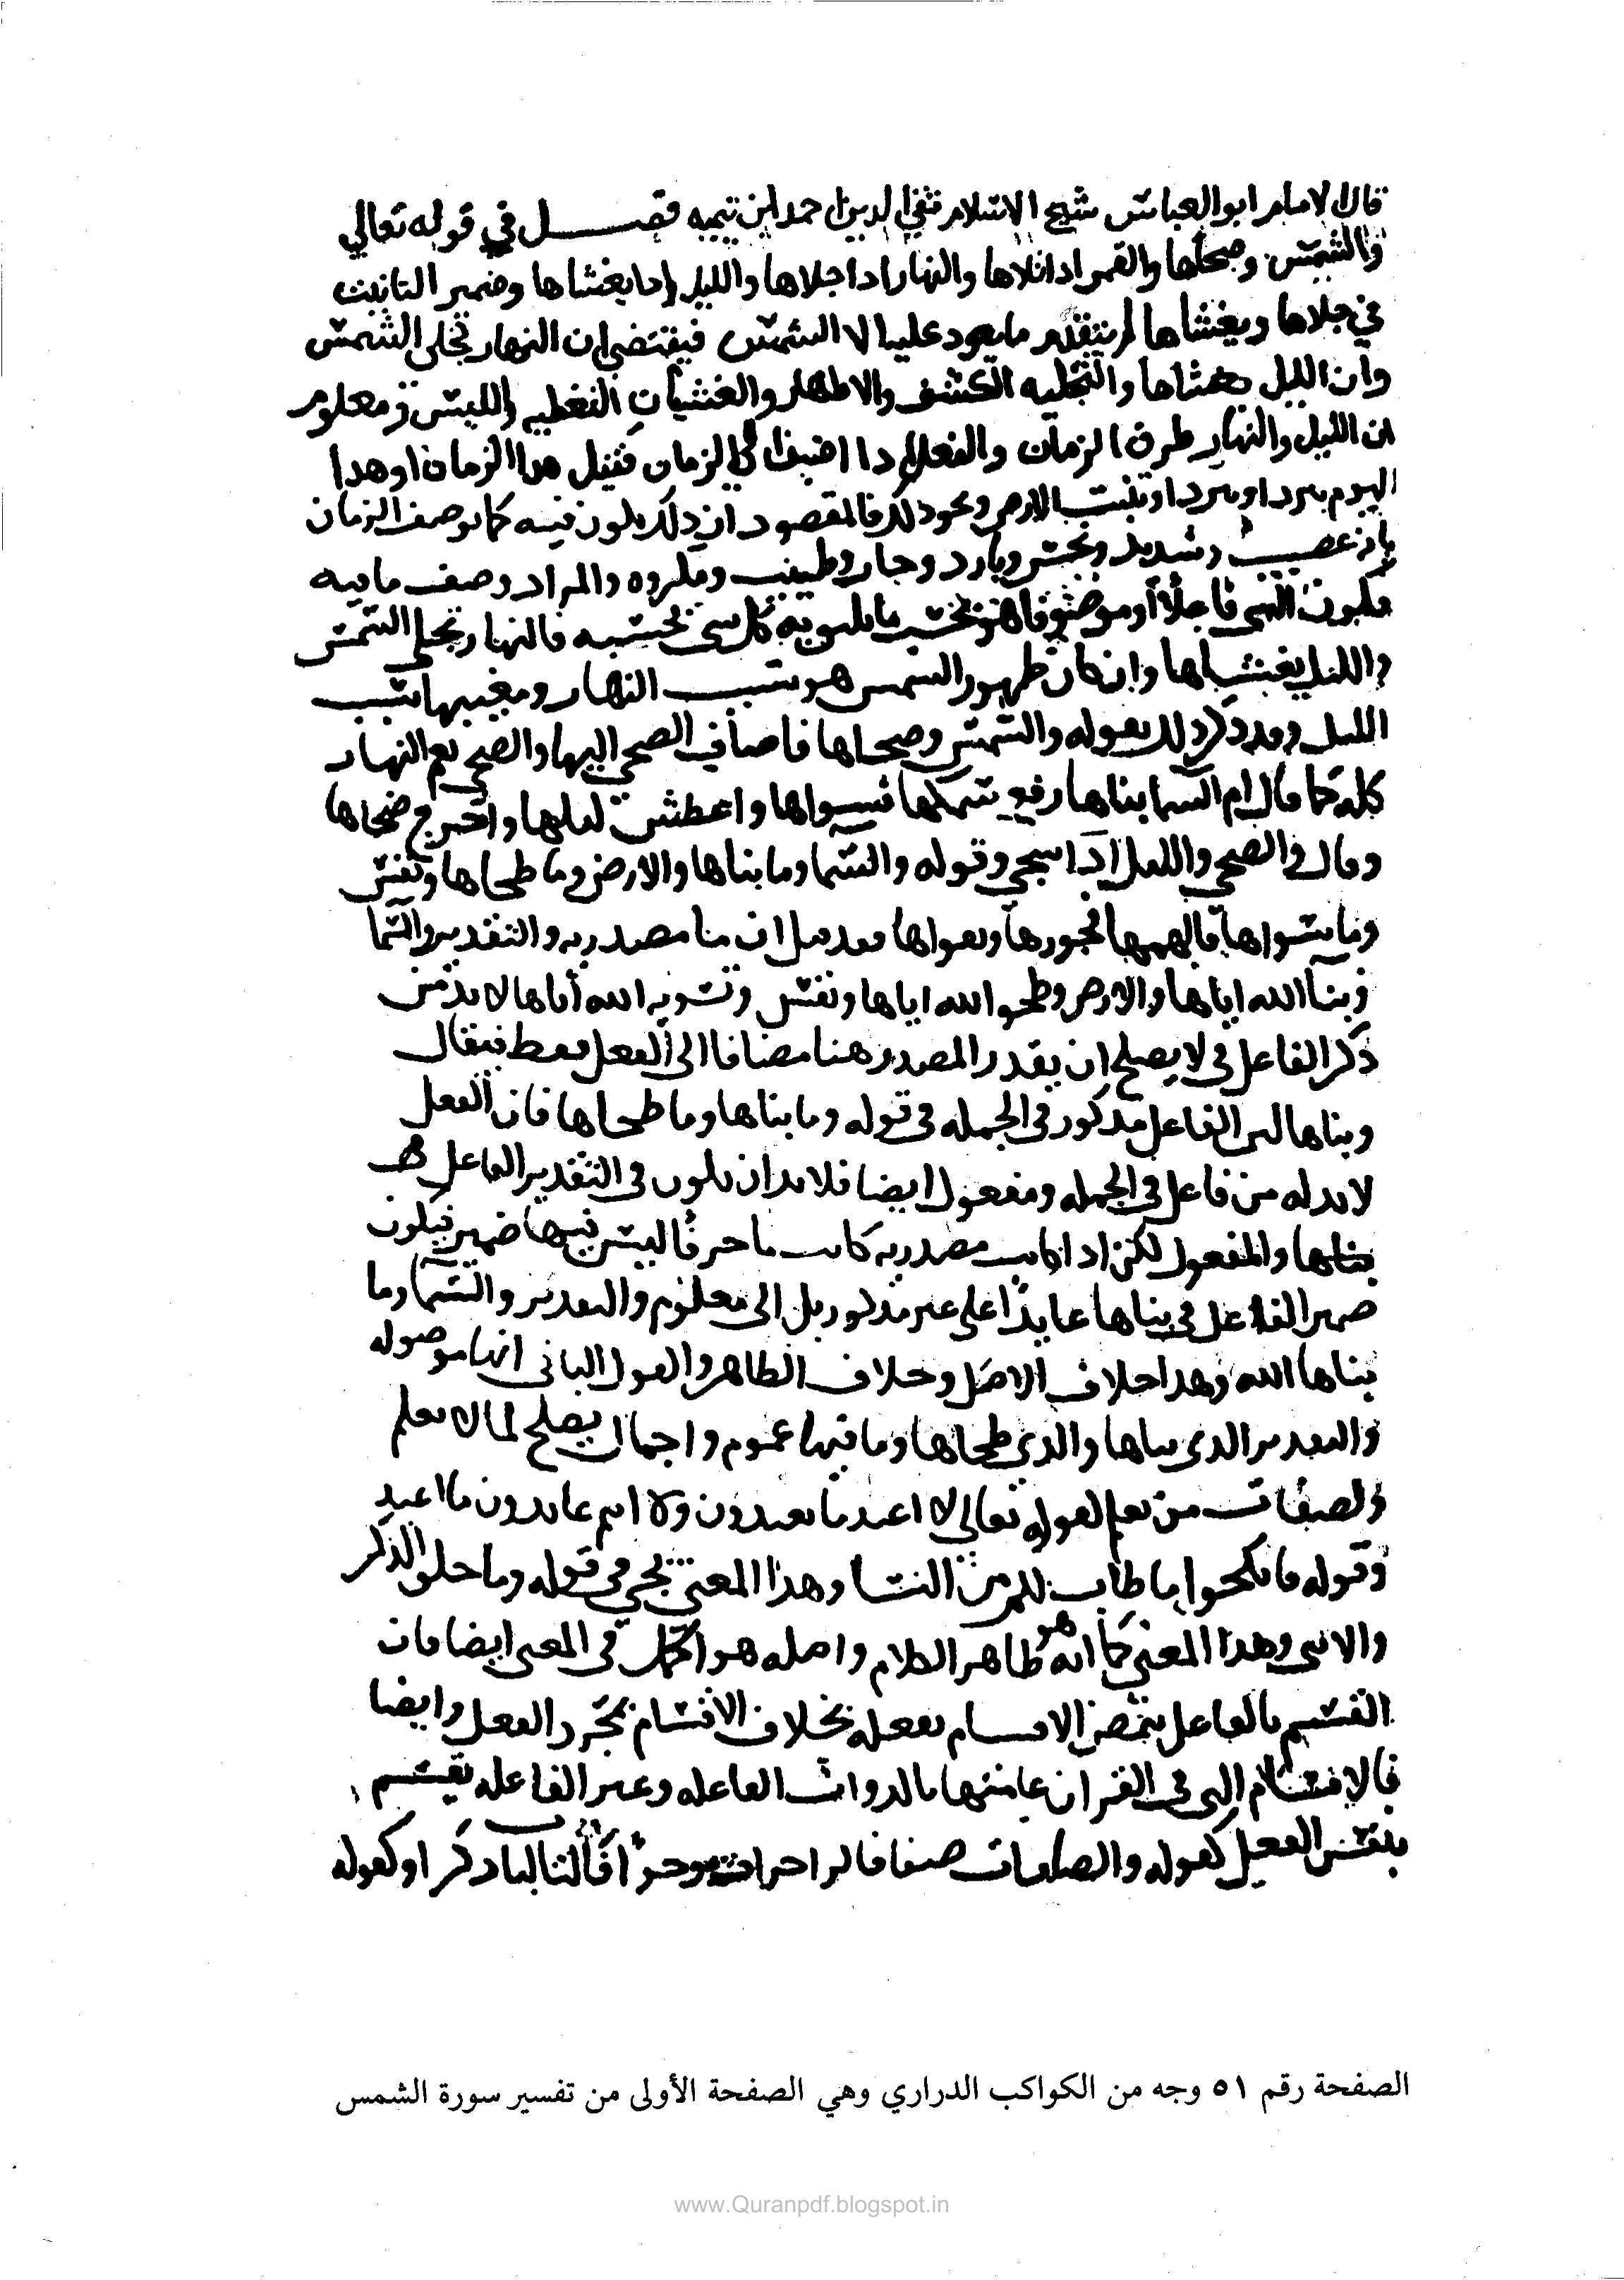 قال الامام ابو العباس شيخ الاسلام تقي الدين احمد ابن تيميه فصــل في قوله تعالي
والشمس وضحاها والقمر اذا تلاها والنهار اذا جلاها والليل اذا يغشاها وضمير التانيث
في جلاها ويغشاها لم يتقدم ما يعود عليه الا الشمس فيقتضي ان النهار يجلي الشمس
وان الليل يغشاها والتجليه الكشف والاظهار والغشيان التغطيه واللبس ومعلوم
ان الليل والنهار ظرفا الزمان والفعل اذا اضيف الي الزمان فقيل هذا الزمان او هذا
اليوم يبرد او يبرد او ينبت الارض ونحو ذلك فالمقصود ان ذلك يكون فيه كما يوصف الزمان
بانه عصيب وشديد ونحس وبارد وحار وطيب ومكروه والمراد وصف ما فيه
فكون الشي فاعلا او موصوفا هو بحسب ما يليق به كل شي بحسبه فالنهار يجلي الشمس
والليل يغشاها وان كان ظهور الشمس هو سبب النهار ومغيبها سبب
الليل وقد ذكر ذلك بقوله والشمس وضحاها فاضاف الضحي اليها والضحي يعم النهار
كله كما قال ام السما بناها رفع سمكها فسواها واغطش ليلها واخرج ضحاها
وقال والضحي والليل اذا سجي وقوله والسما وما بناها والارض وما طحاها ونفس
وما سواها فالهمها فجورها وتقواها فقد قيل ان ما مصدريه والتقدير والسما
وبنا الله اياها والارض وطحو الله اياها ونفس وتسويه الله اياها لا بد من
ذكر الفاعل في لا يصلح ان يقدر المصدر هنا مضافا الى الفعل فقط فيقال
وبناها لان الفاعل مذكور في الجمله في قوله وما بناها وما طحاها فان الفعل
لا بد له من فاعل في الجمله ومفعول ايضا فلا بد ان يكون في التقدير الفاعل
بناها والمفعول لكن اذا كانت مصدريه كانت ما حرفا ليس فيها ضمير فيكون
ضمير الفاعل في بناها عايدا على غير مذكور بل الى معلوم والتقدير والسما وما
بناها الله وهذا خلاف الاصل وخلاف الظاهر والقول الثاني انها موصوله
والتقدير الذي بناها والذي طحاها وما فيها عموم واجمال يصلح لما لا يعلم
ولصفات من يعلم لقوله تعالى لا اعبد ما تعبدون ولا انتم عابدون ما اعبد
وقوله فانكحوا ما طاب لكم من النسا وهذا المعني يجي في قوله وما خلق الذكر
والانثي وهذا المعني كما انه هو ظاهر الكلام واصله هو اكمل في المعنى ايضا فان
القسم بالفاعل يتضمن الاقسام بفعله بخلاف الاقسام بمجرد الفعل وايضا
فالاقسام التي في القران عامتها بالذوات الفاعله وغير الفاعله يقسم
بنفس الفعل كقوله والصافات صفا فالزاجرات زجرا فالتاليات ذكرا وكقوله
الصفحة رقم ٥١ وجه من الكواكب الدراري وهي الصفحة الأولى من تفسير سورة الشمس
www.Quranpdf.blogspot.in